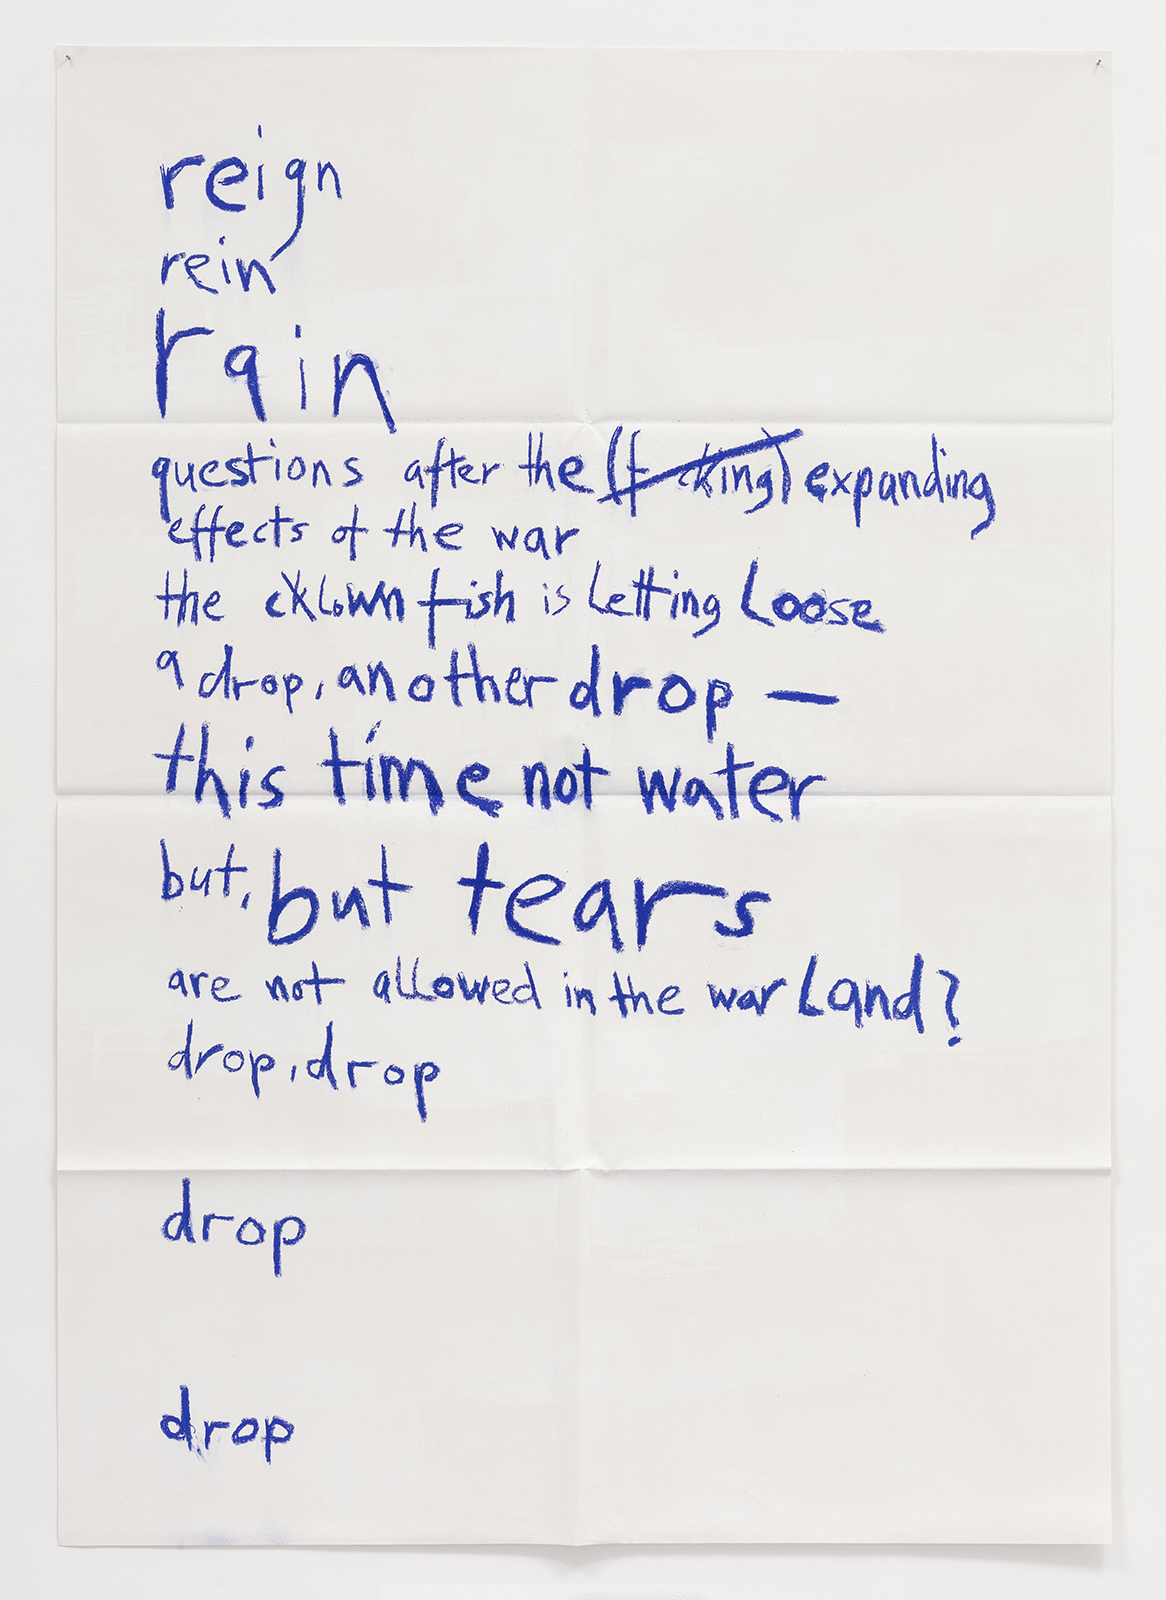 reign
rein
rain
questions after the (f cking) expanding
effects of the war
the cklown fish is letting Loose
a drop, another drop —
this time not water
but, but tears
are not allowed in the war Land?
drop, drop
drop
drop